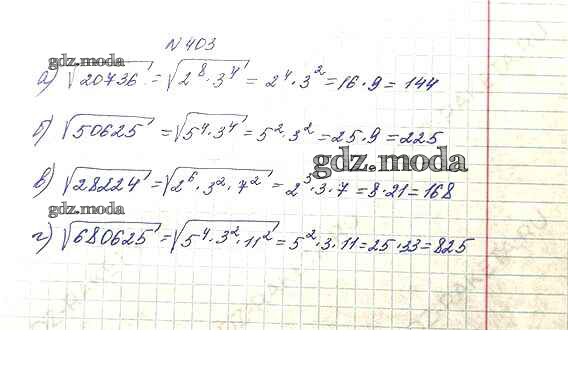 №403
gdz.moda
а) √20736 = √2⁸·3⁴ = 2⁴·3² = 16·9 = 144
б) √50625 = √5⁴·3⁴ = 5²·3² = 25·9 = 225
gdz.moda
в) √28224 = √2⁶·3²·7² = 2³·3·7 = 8·21 = 168
gdz.moda
г) √680625 = √5⁴·3²·11² = 5²·3·11 = 25·33 = 825